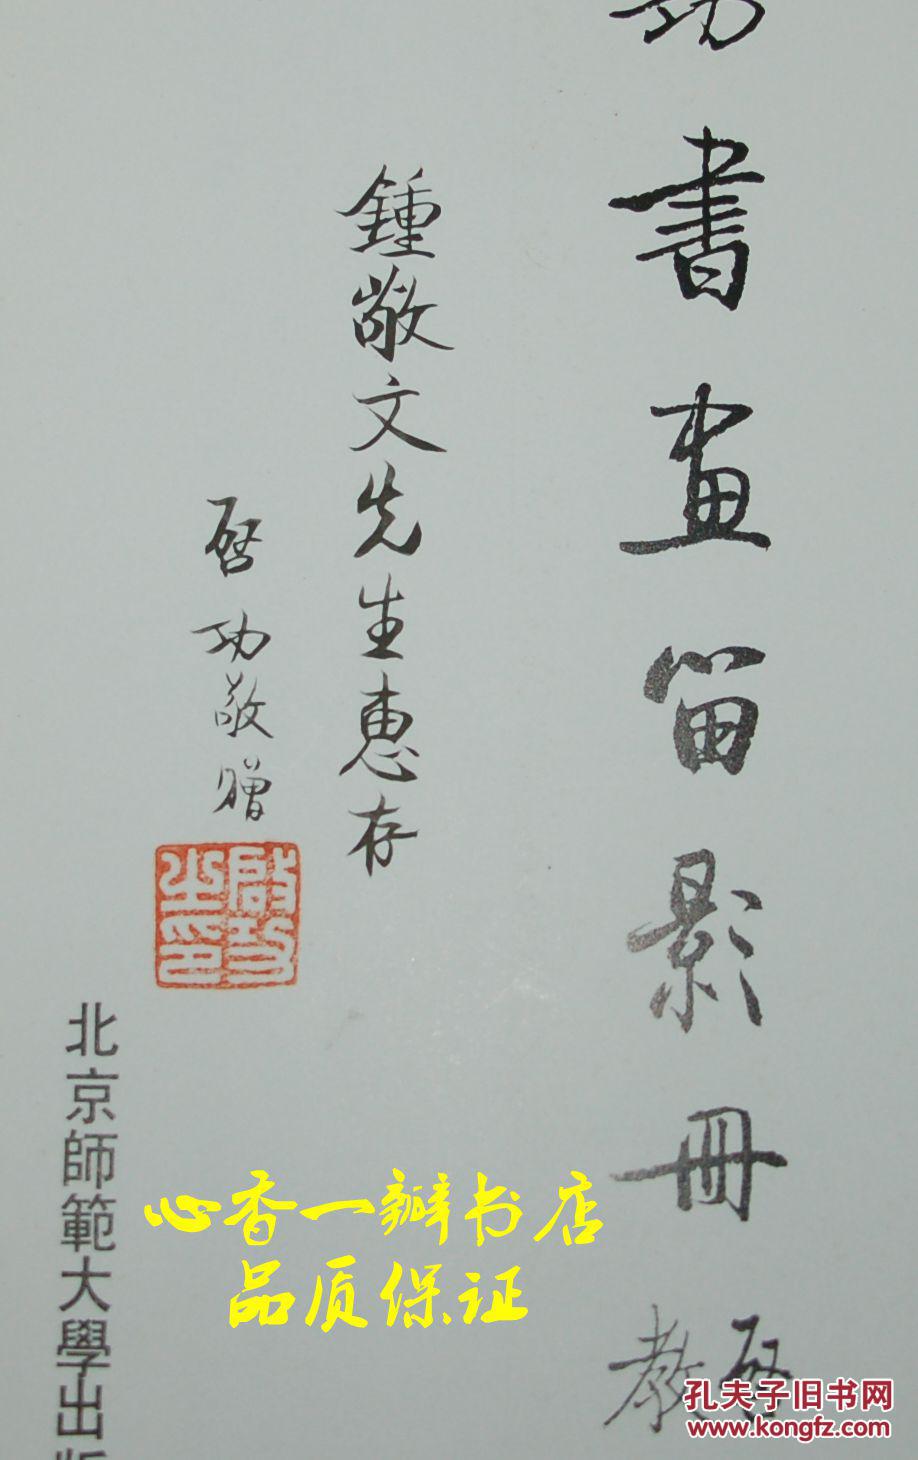 功書畫留影冊
啓
教
鍾敬文先生惠存
啓功敬贈
啟功
之印
北京師範大學出版
心香一瓣书店
品质保证
孔夫子旧书网
www.kongfz.com